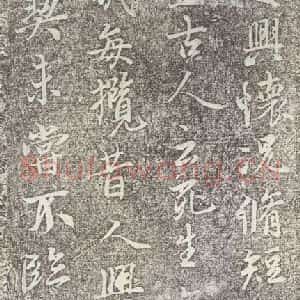 興懷况脩短
古人云死生
每攬昔人興
契未嘗不臨
Shufawang.CN